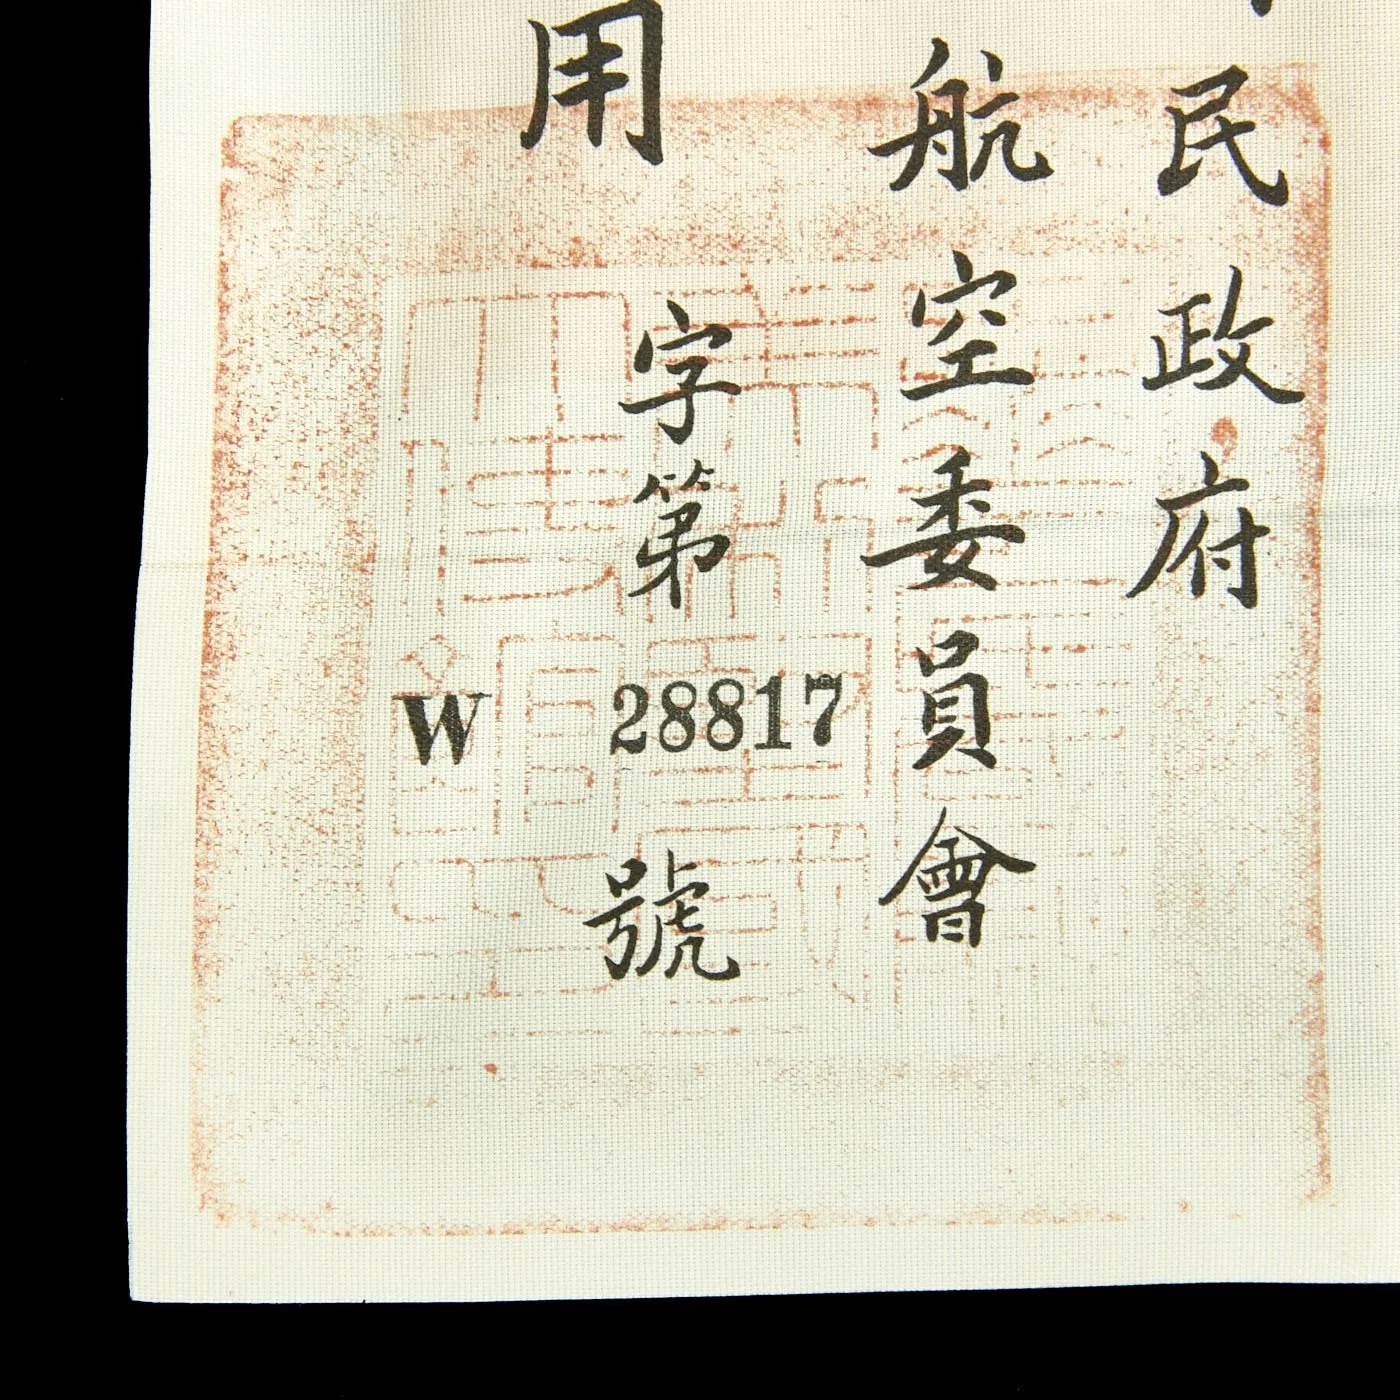 民政府
航空委員會
用
字第 28817 號
W